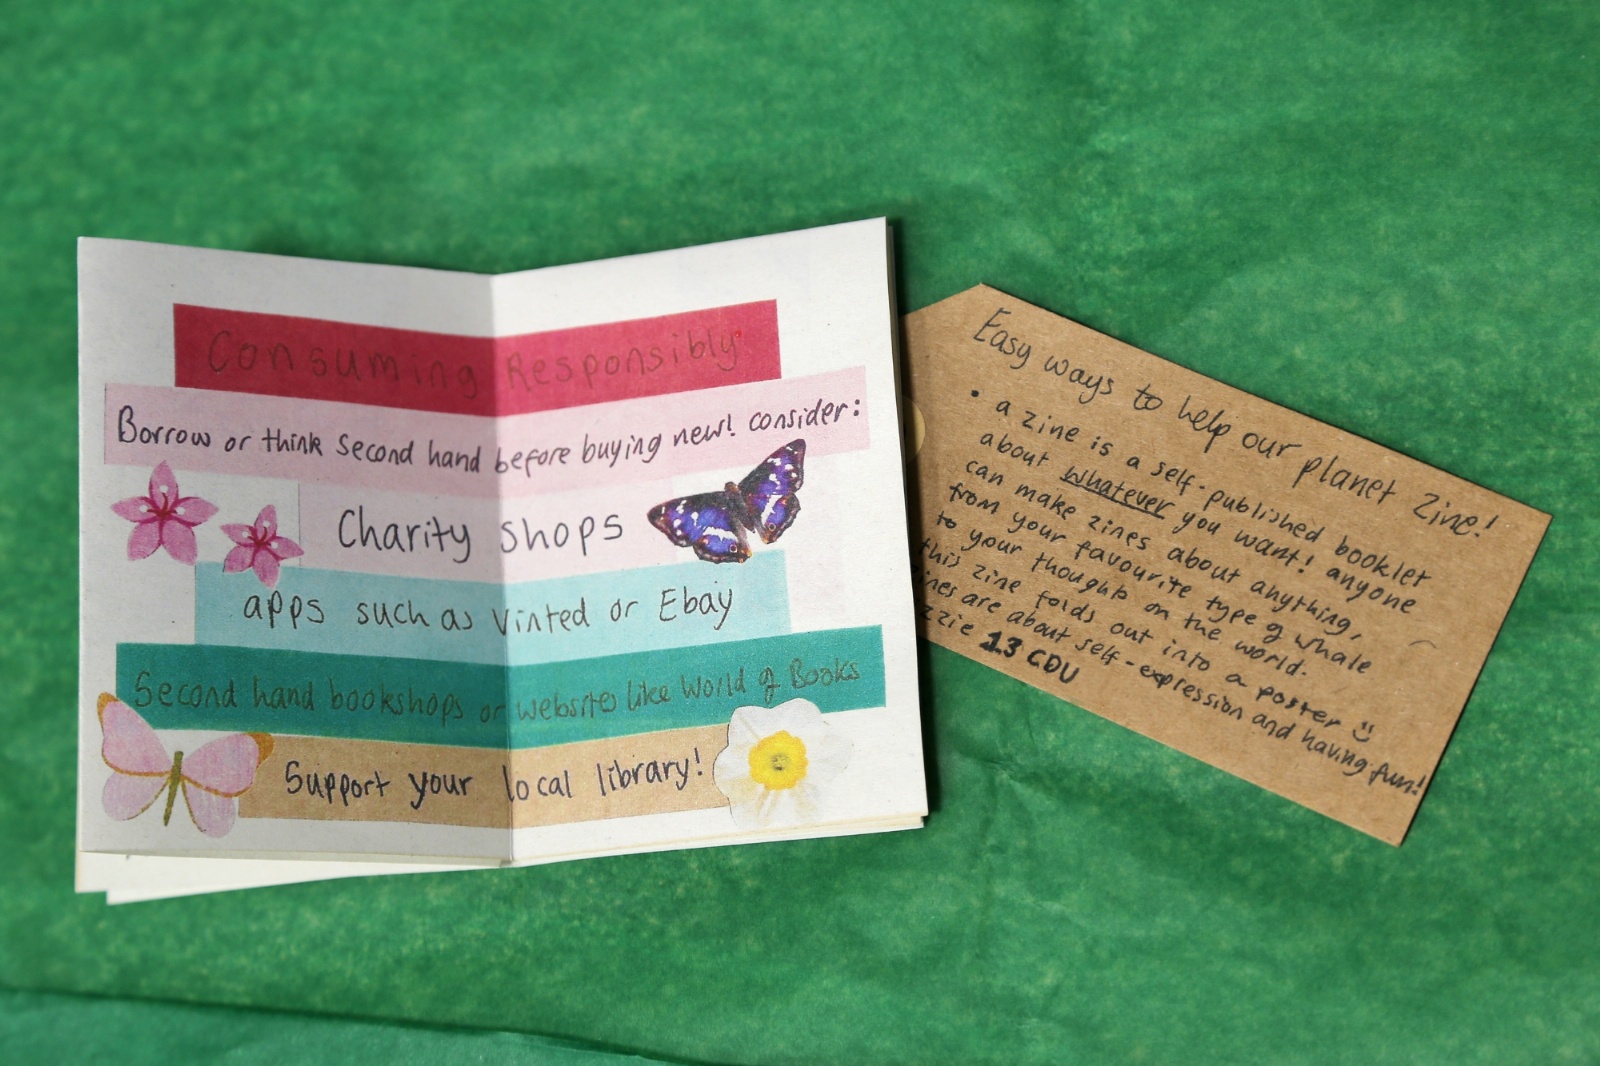 Consuming Responsibly
Borrow or think second hand before buying new! consider:
Charity shops
apps such as Vinted or Ebay
Second hand bookshops or websites like World of Books
Support your local library!
Easy ways to help our planet Zine!
• a zine is a self-published booklet
about whatever you want! anyone
can make zines about anything,
from your favourite type of whale
to your thoughts on the world.
this zine folds out into a poster
are about self-expression and having fun!
13 CDU